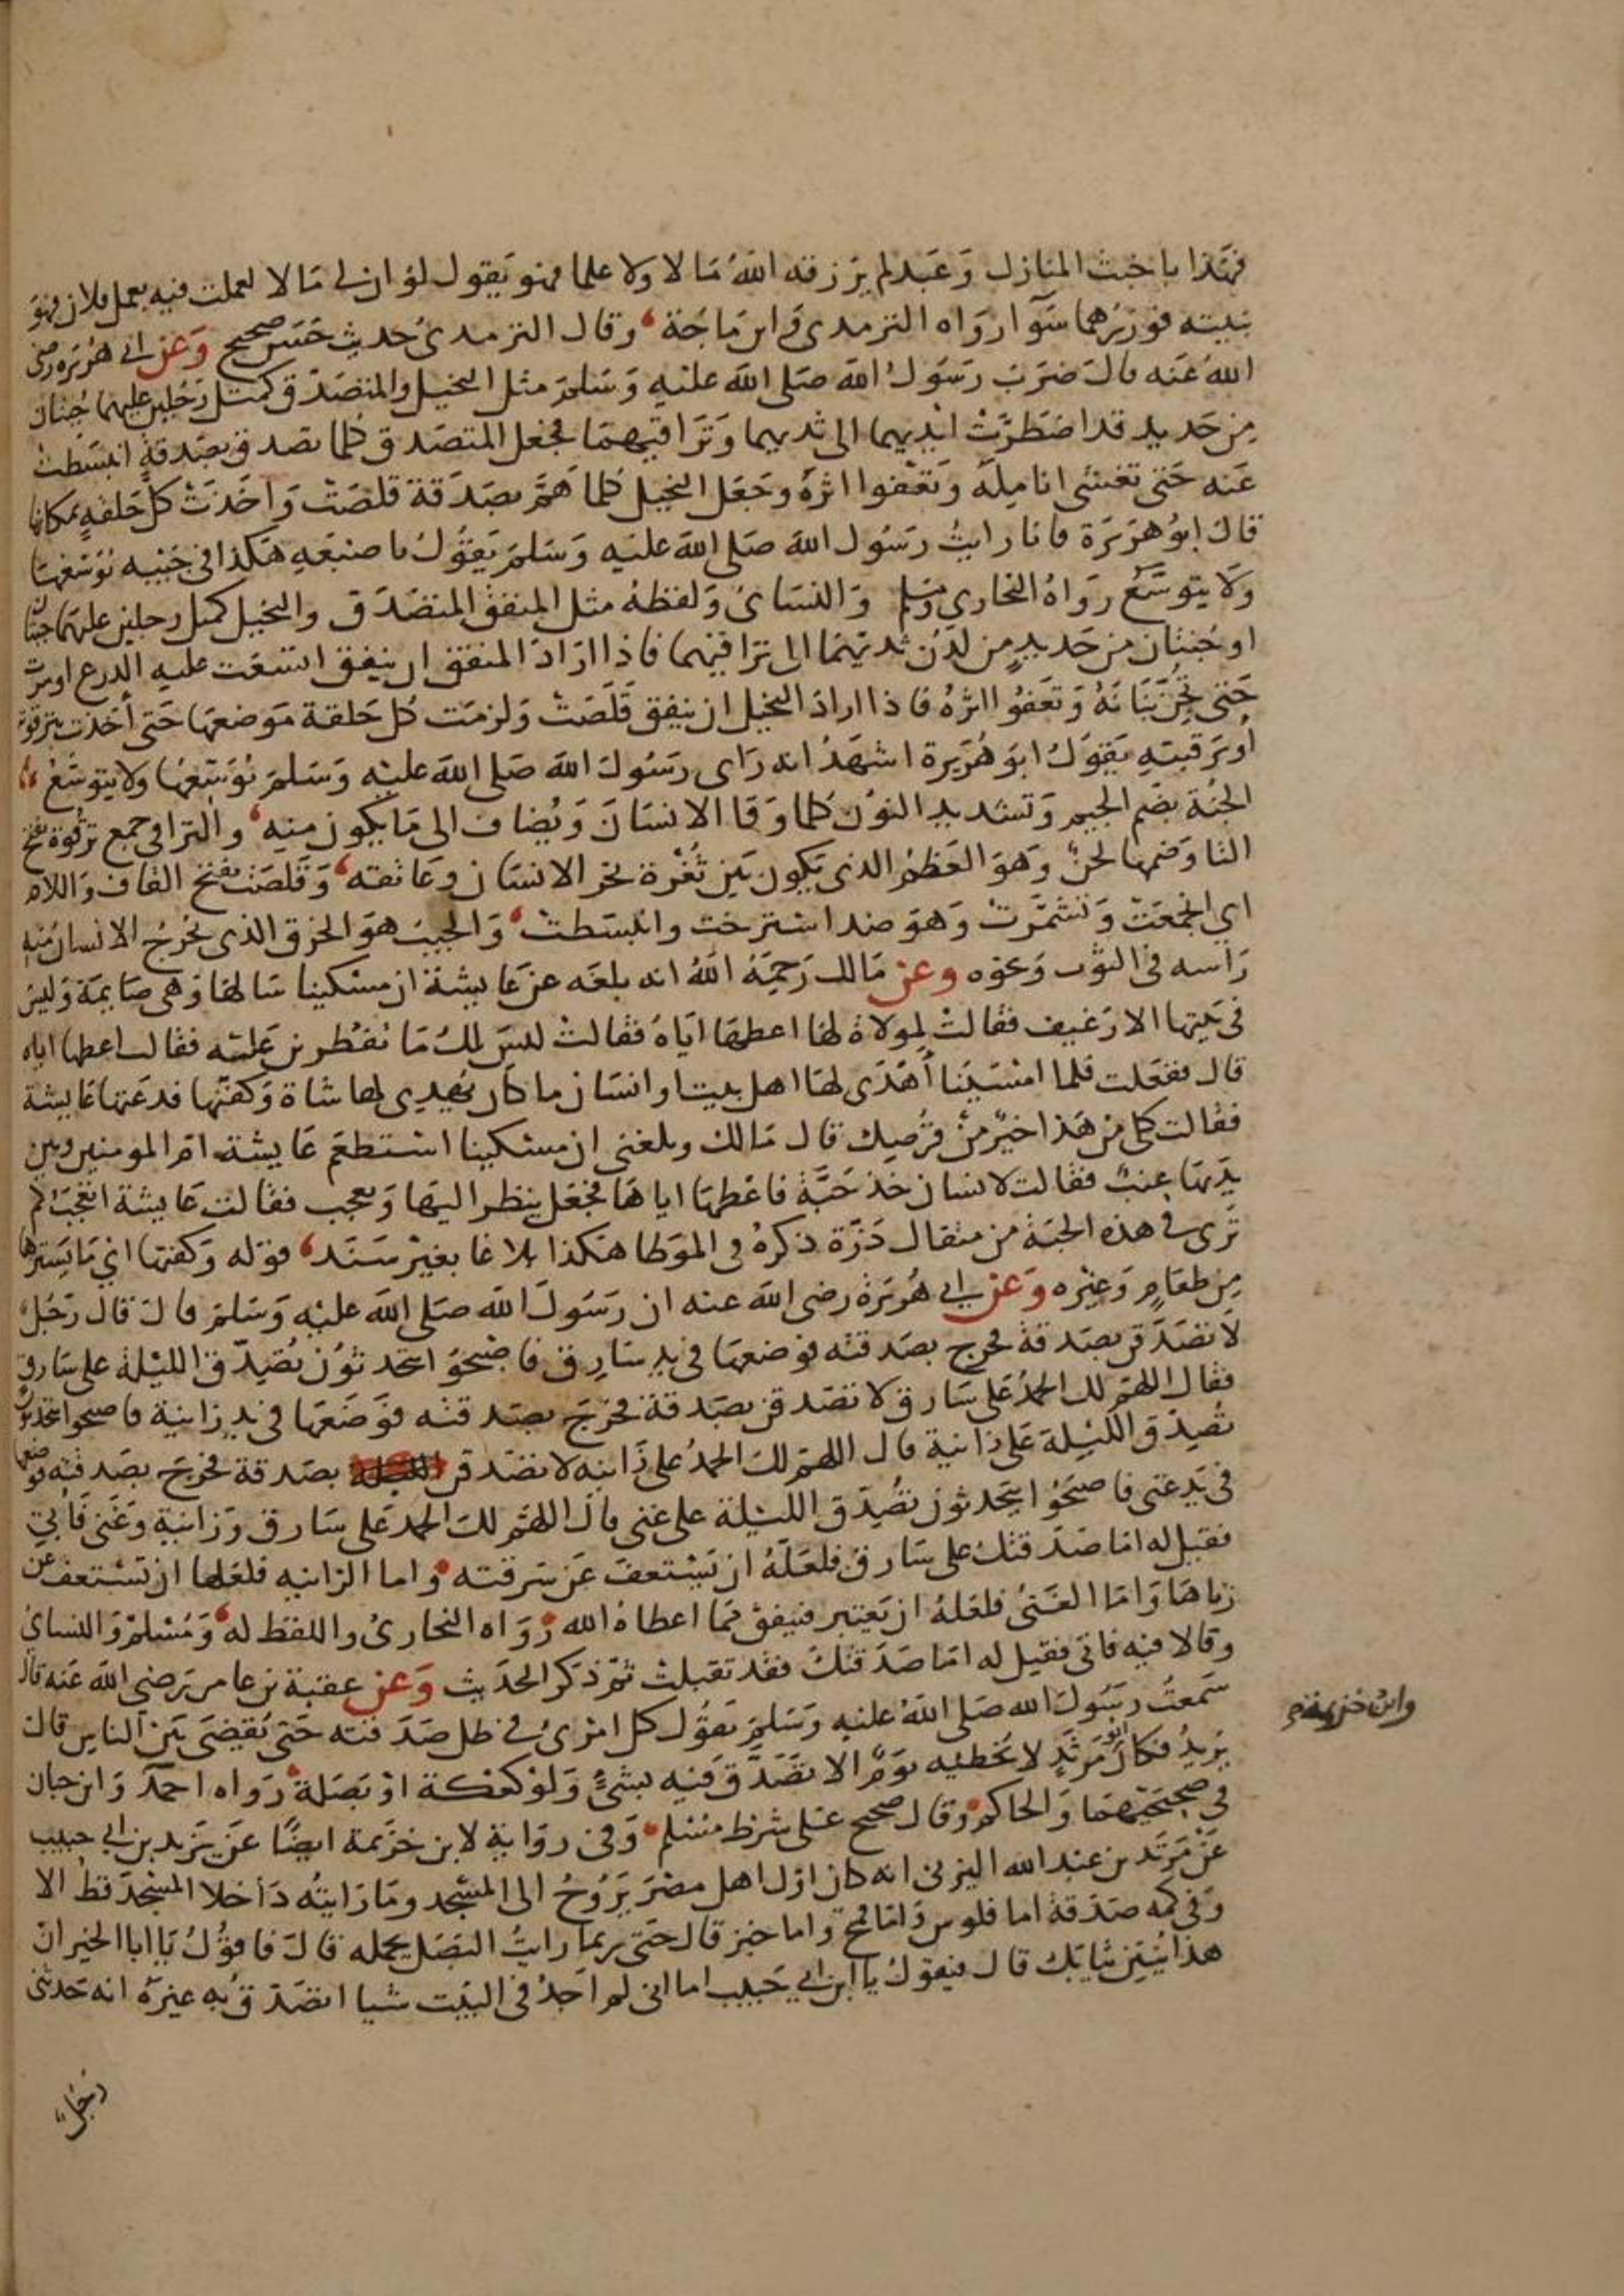 فهذا باخبث المنازل وَعَبد لم يَرزقه اللهُ مَالا ولا علما فهو يَقول لوْ ان لى مَالا لعملت فيه بعمل فلان فهوَ
بنيته فوزرُهما سَوآ رَواه الترمدى وَابن مَاجَة وقال الترمدىُ حديث حَسَن صحيح وَعَن ابى هُرَيرَه رضى
اللهُ عَنه قالَ ضرَبَ رسَوُلُ اللهَ صَلى اللهَ عليْهِ وَسَلمَ مثل البخيل والمتصَدّق كمثل رَجُلين عليهما جُنتان
مِن حَديد قد اضطرّتْ ايْديهما الى ثديهما وَتَرَاقيهمَا فجعل المتصَدق كلما تصدق بصَدقةٍ انبسَطتْ
عَنه حَتى تغشى اناملَهُ وَتعْفوا اثرَهُ وجَعَل البخيل كلما هَمَّ بصَدَقة قلصَتْ وَاخَذتْ كلّ حَلقهٍ بمكانها
قالَ ابوُ هرَيرَة فانا رايتُ رسَول اللهَ صَلى اللهَ عليْه وَسَلمَ يَقوُلُ باصبَعَهِ هَكذا فى جَيبه يُوَسّعهَا
وَلا يتوسَّعُ رَوَاهُ البخاري ومسلم وَالنسَائ وَلفظهُ مثل المنفقِ المتصَدّق والبخيل كمثل رجلين عليهما جبتان
او جُنتان من حَديدٍ من لدُن ثديّهمَا الى ترَاقيهما فاذا ارَادَ المنفق ان ينفق اتسعَت عليه الدرع او مرّت
حَتى تجنّ بَنَانَهُ وَتعَفوُ اثرَهُ فاذا ارادَ البخيل ان ينفق قَلَصَتْ وَلزمَت كل حَلقة مَوضعهَا حَتى أخذت بترقوته
أوبرَقبتهِ يَقوَلُ ابوَ هُرَيرة اشهَدُ انه رَاى رسَوُلَ اللهَ صَلى اللهَ عليْه وَسَلمَ يُوَسّعهَا ولا يتوسّعُ
الجنّة بضَم الجيم وَتشديد النوُن كلما وَقَا الانسَانَ وَيُضاف الى مَا يكون منهِ والتراقى جمع ترقوة بفتح
التا وَضمها لحنٌ وَهوَ العَظمُ الذى يَكون بَين ثُغْرة نحر الانسَان وعَاتقه وَقَلصَتْ بفتح القاف وَاللام
اي اجتمعَتْ وَتشمّرَتْ وَهوَ ضد استرخت وانبسَطتْ وَالجيبُ هوَ الخرق الذى يُخرجُ الانسانُ منهِ
رَاسه فى الثوْب وَنحوه وعن مَالك رَحمَهُ اللهُ انه بلغَه عَن عَايشة ان مسْكينا سَالهَا وَهى صَايمَة وَليسَ
فى بَيتها الا رَغيف فقالتْ لمولاةٍ لها اعطهَا ايّاهُ فقالتْ ليسَ لكُ مَا تفطرين عَليْه فقالت اعطها اياه
قال ففعَلت فلما امسَيْنا أهْدَى لهَا اهل بيت او انسَان ما كان يُهدى لها شاة وَكفنَها فدعَتها عَايشة
فقالت كلى من هَذا خيْرٌ منْ قرُصِك قال مَالك وبلغنى ان مسكينا استطعَمَ عَايشة ام المومنين وبين
يدَيهَا عِنبٌ فقالت لانسان خذ حَبَّة فاعْطهَا اياهَا فجَعَل ينظر اليهَا وَيعجب فقالت عَايشة اتعْجَبُ كم
تَرى فى هذه الحبَة من مثقال ذرّة ذكرهُ فى الموَطا هَكذا بلاغا بغيرْ سَنَد قوله وَكفنها ايْ مَا يَسترها
مِن طعَامٍ وَغيْره وَعَن ابى هُرَيَرَة رضى اللهَ عنه ان رَسَوُلَ اللهَ صَلى اللهَ عليْه وَسَلمَ قالَ قال رَجُلٌ
لاتصَدّقن بصَدقةٍ فخرج بصَدقته فوضعهَا فى يد سَارِق فاصْبحَوُ ايتحدثوُن تُصُدّق الليْلة على سَارقٍ
فقال اللهمّ لك الحمدُ عَلى سَارق لاتصَدقن بصَدقةٍ فخرَجَ بصَدقته فوَضَعَهَا فى يد زانية فاصبحوا يتحدثون
تصُدّق اللّيْلة عَلى زانية قال اللهمّ لكَ الحمدُ على زَانيه لاتصَدقن بصَدقة فخرَجَ بصَدقته فوضعها
فى يَد غنى فاصبحَوُا يتحَدثون تصُدّق الليْلة على غنى قالَ اللهمّ لكَ الحمدَ عَلى سَارق وَزانيةٍ وَغَنى فَأُتِيَ
فقيل له امّا صَدَقتكَ على سَارقٍ فلعَلّهُ ان يَسْتعفَ عَن سَرقته واما الزانيه فلعَلها ان تَسْتعفّ عَن
زناهَا وَامّا الغَنىُ فلعَلهُ ان يَعتبر فينفق ممّا اعطاهُ الله رَوَاه البخارىُ واللفظ له وَمُسْلمْ وَالنسائ
وقالا فيه فاتى فقيل له امّا صَدَقتكَ فقد تقبلتْ ثمّ ذكرَ الحدَيث وَعَن عقبة بن عامر رَضى اللهَ عَنه قال
سَمعتُ رسَوُلَ الله صَلى اللهُ عليْه وَسَلمِ يَقوُل كل امْرئٍ فى ظل صَدَقته حَتى يُقضىَ بَين الناس قال
يَزيدُ فكانَ ابو مَرثَدٍ لا يخطئه يَوَمٌ الا تصَدَّقَ فيه بشئٍ وَلوْ كعْكة اوْ بَصَلة رَواه احمدَ وَابن حبان
وابن خزيمة
فى صَحيحَيْهمَا وَالحاكم وَقال صحيح عَلى شرْط مسْلم وَفى روَايةٍ لابن خزَيمة ايضًا عَن يَزيد بن ابى حبيب
عَنْ مَرثَد بن عَبد الله اليزنىّ انه كان اوّل اهل مصْرَ يَرَوُحُ الى المسْجد ومَا رَايتُه دَاخلا المسْجدَ قط الا
وَفى كمه صدَقة اما فلوس وَامّا قمح وَاما خبز قال حَتى ربما رايتُ البصَل يحمله قالَ فاقوُلُ يَا ابا الخير ان
هذا يُنتِن ثيابَك قال فيقولُ يا ابن ابى حَبيب اما انى لم اَجدْ فى البَيت شيا اتصَدّق به غيرَهُ انه حَدثنى